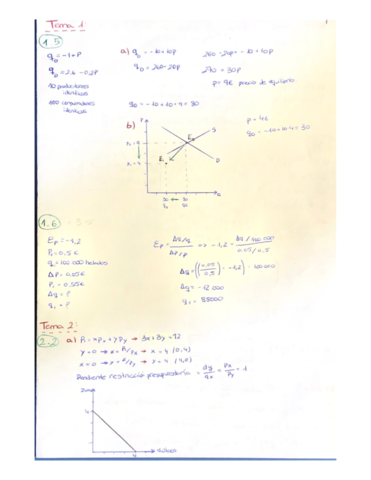 Tema 1:
1.5
q₀ = -1+P
q_D = 2.6 - 0.2P
10 productores
idénticos
100 consumidores
idénticos
a) q₀ = -10+10P
q_D = 260-20P
260-20P = -10+10P
270 = 30P
P = 9€ precio de equilibrio
q₀ = -10+10·9 = 80
b)
P
S
E₀
P₀ = 9
E₁
P₁ = 4
D
30
80
P = 4€
q₀ = -10+10·4 = 30
1.6
Ep = -1,2
P₀ = 0.5€
q = 100 000 helados
P₁ = 0.55€
Δq = ?
q₁ = ?
Ep = Δq/q / ΔP/P => -1,2 = Δq/100 000 / 0.05/0.5
Δq = ((0.05/0.5) · -1,2) · 100000
Δq = -12 000
q₁ = 88000
Tema 2:
2.2
a) R = xPx + yPy → 3x+3y = 12
y=0 → x = R/Px → x = 4
x=0 → y = R/Py → y = 4
Pendiente restricción presupuestaria = dy/dx = Px/Py = 1
4
4